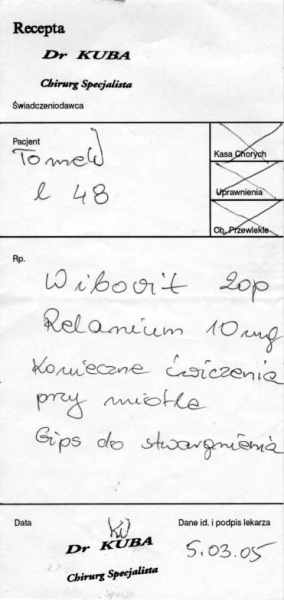 Recepta
Dr KUBA
Chirurg Specjalista
Świadczeniodawca
Pacjent
Tomek
l 48
Kasa Chorych
Uprawnienia
Ob. Przewlekłe
Rp.
Wibovit 20p
Relanium 10 mg
Konieczne ćwiczenia
przy miotle
Gips do stwardnienia
Data
Dane id. i podpis lekarza
Dr KUBA
Chirurg Specjalista
5.03.05